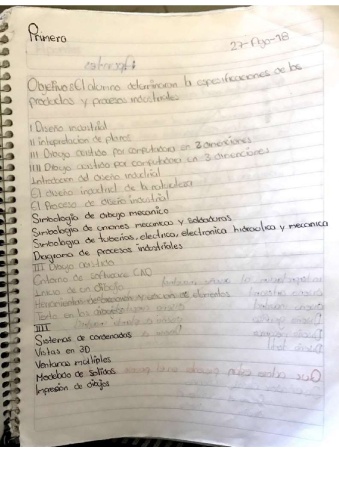 Primero
27-Ago-18
Objetivo: El alumno determinara la especificaciones de los
productos y procesos industriales
I Diseño industrial
II interpretacion de planos
III Dibujo asistido por computadora en 2 dimenciones
IIII Dibujo asistido por computadora en 3 dimenciones
Introduccion del diseño industrial
El diseño industrial de la naturaleza
El Proceso de diseño industrial
Simbología de dibujo mecanico
Simbologia de uniones mecanicas y soldaduras
Simbologia de tuberias, electrica, electronica hidraulica y mecanica
Diagrama de procesos industriales
III Dibujo asistido
Criterio de software CAD
Inicio de un dibujo
Herramientas de y de elementos
Texto en los dibujos
IIII
Sistemas de cordenadas
Vistas en 3D
Ventanas multiples
Modelado de solidos
Impresión de dibujos